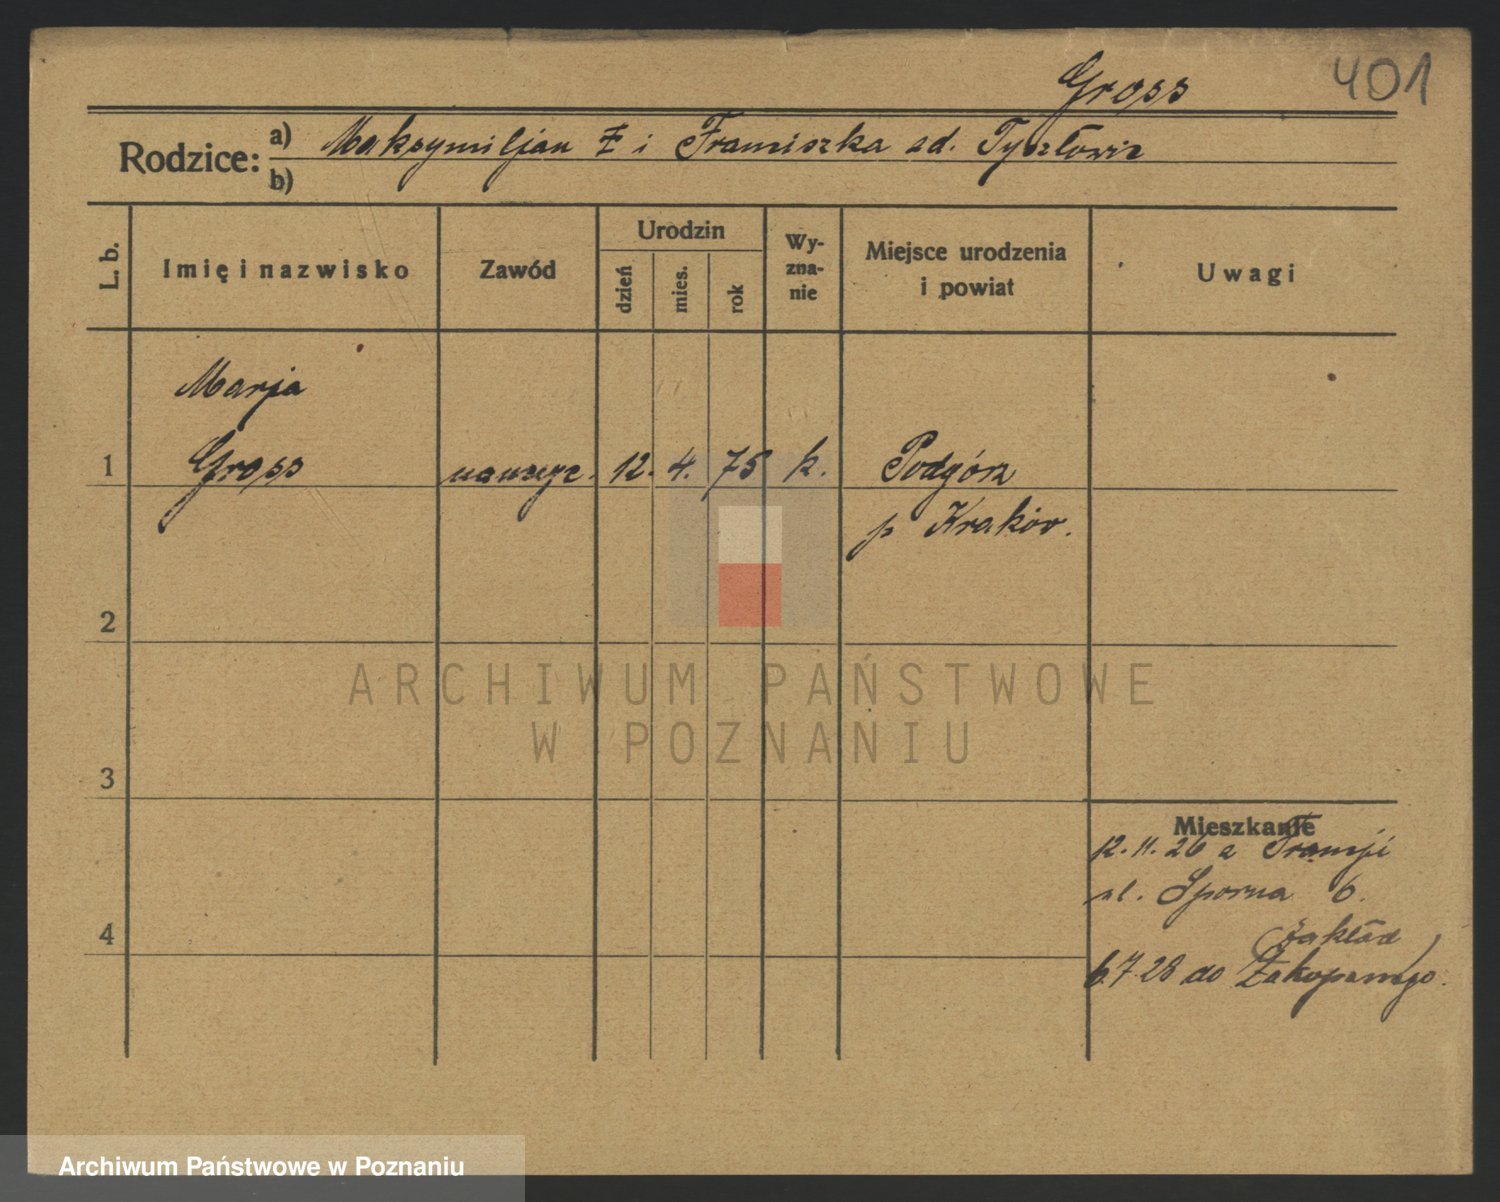 Gross 401
Rodzice: a) Maksymiljan i Franciszka zd.
b)
L. b. Imię i nazwisko Zawód Urodzin dzień mies. rok Wy-zna-nie Miejsce urodzenia i powiat Uwagi
Marja
1 Gross nauczyc. 12. 4. 75 k. Podgórz
p Kraków.
2
3
Mieszkanie
12.11.26 z Francji
ul. Sporna 6.
4 (Zakład
6.7.28 do Zakopanego.)
ARCHIWUM PAŃSTWOWE
W POZNANIU
Archiwum Państwowe w Poznaniu